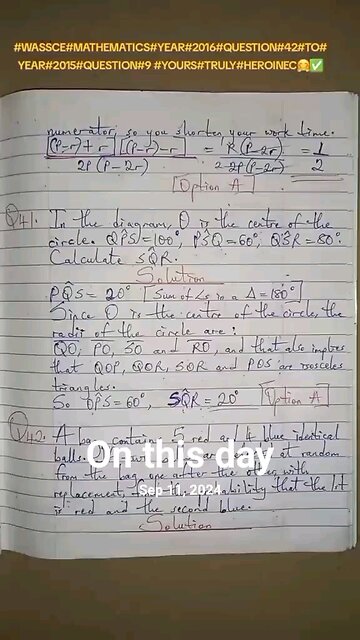 #WASSCE#MATHEMATICS#YEAR#2016#QUESTION#42#TO#
YEAR#2015#QUESTION#9 #YOURS#TRULY#HEROINEC🤗✅
numerator, so you shorten your work time.
[(P-r)+r][(P-r)-r] = P(P-2r) = 1
2P(P-2r) 2P(P-2r) 2
Option A
Q41. In the diagram, O is the centre of the
circle. QP̂S = 100°, PŜQ = 60°, QŜR = 80°.
Calculate SQ̂R.
Solution
PQ̂S = 20° [Sum of ∠s in a Δ = 180°]
Since O is the centre of the circle, the
radii of the circle are:
QO, PO, SO and RO, and that also implies
that QOP, QOR, SOR and POS are isosceles
triangles.
So OP̂S = 60°, SQ̂R = 20° Option A
Q42. A bag contains 5 red and 4 blue identical
balls. are at random
On this day
from the bag one after the other with
replacement, probability that the 1st
Sep 11, 2024
is red and the second blue.
Solution